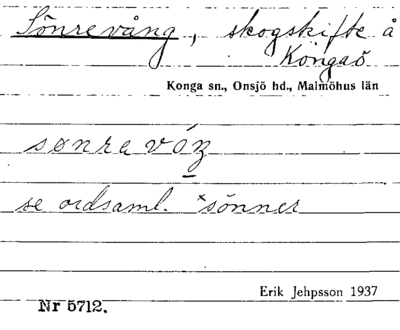 Sönrevång, skogskifte å
Kongaö
Konga sn., Onsjö hd., Malmöhus län
sønrevóŋ
se ordsaml. *sönner
Erik Jehpsson 1937
Nr 5712.